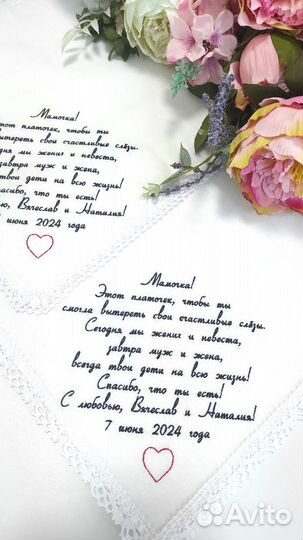 Мамочка!
этот платочек, чтобы ты
вытереть свои счастливые слёзы.
мы жених и невеста,
завтра муж и жена,
твои дети на всю жизнь!
что ты есть!
Вячеслав и Наталия!
июня 2024 года
Мамочка!
Этот платочек, чтобы ты
смогла вытереть свои счастливые слёзы.
Сегодня мы жених и невеста,
завтра муж и жена,
всегда твои дети на всю жизнь!
Спасибо, что ты есть!
С любовью, Вячеслав и Наталия!
7 июня 2024 года
Avito